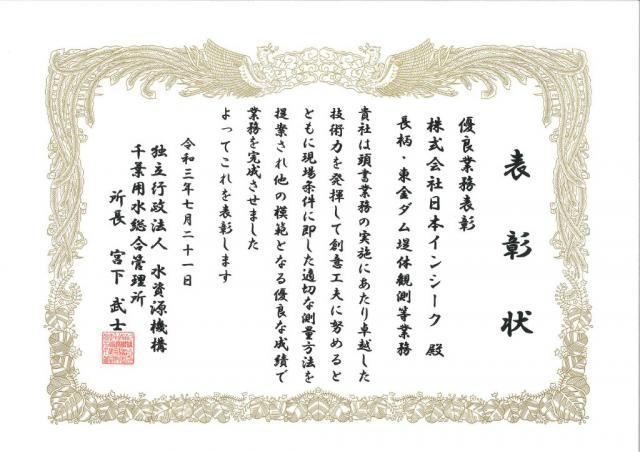 表彰状
優良業務表彰
株式会社日本インシーク 殿
長柄・東金ダム堤体観測等業務
貴社は頭書業務の実施にあたり卓越した
技術力を発揮して創意工夫に努めると
ともに現場条件に即した適切な測量方法を
提案され他の模範となる優良な成績で
業務を完成させました
よってこれを表彰します
令和三年七月二十一日
独立行政法人 水資源機構
千葉用水総合管理所
所長 宮下 武士